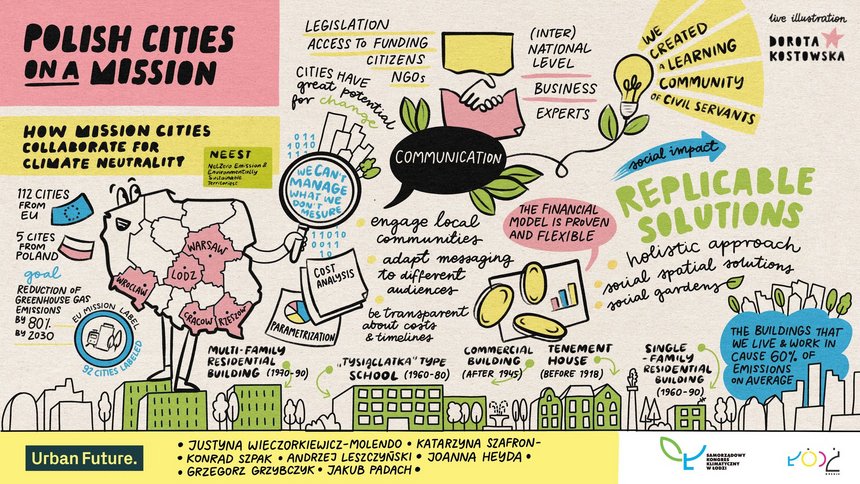 POLISH CITIES
ON A MISSION
HOW MISSION CITIES
COLLABORATE FOR
CLIMATE NEUTRALITY
NEEST
NetZero Emission &
Environmentally
Sustainable
Territories
112 CITIES
FROM
EU
5 CITES
FROM
POLAND
goal
REDUCTION OF
GREENHOUSE GAS
EMISSIONS
BY 80%
BY 2030
EU MISSION LABEL
92 CITIES LABELED
WARSAW
LODZ
WROCLAW
CRACOW
RZESZOW
LEGISLATION
ACCESS TO FUNDING
CITIZENS
NGOs
CITIES HAVE
great potential
for change
1011
110
WE CAN'T
MANAGE
WHAT WE
DON'T
MESURE
11010
0011
10
COST
ANALYSIS
PARAMETRIZATION
(INTER)
NATIONAL
LEVEL
BUSINESS
EXPERTS
COMMUNICATION
• engage local
communities
• adapt messaging
to different
audiences
• be transparent
about costs
& timelines
WE
CREATED
A LEARNING
COMMUNITY
OF CIVIL SERVANTS
live illustration
DOROTA
KOSTOWSKA
social impact
REPLICABLE
SOLUTIONS
THE FINANCIAL
MODEL IS PROVEN
AND FLEXIBLE
• holistic approach
• social spatial solutions
• social gardens
THE BUILDINGS THAT
WE LIVE & WORK IN
CAUSE 60% OF
EMISSIONS
ON AVERAGE
MULTI-FAMILY
RESIDENTIAL
BUILDING (1970-90)
"TYSIĄCLATKA" TYPE
SCHOOL (1960-80)
COMMERCIAL
BUILDING
(AFTER 1945)
TENEMENT
HOUSE
(BEFORE 1918)
SINGLE
-FAMILY
RESIDENTIAL
BUILDING
(1960-90)
Urban Future.
• JUSTYNA WIECZORKIEWICZ-MOLENDO • KATARZYNA SZAFRON-
• KONRAD SZPAK • ANDRZEJ LESZCZYŃSKI • JOANNA HEYDA •
• GRZEGORZ GRZYBCZYK • JAKUB PADACH •
SAMORZĄDOWY
KONGRES
KLIMATYCZNY
W ŁODZI
ŁÓDŹ